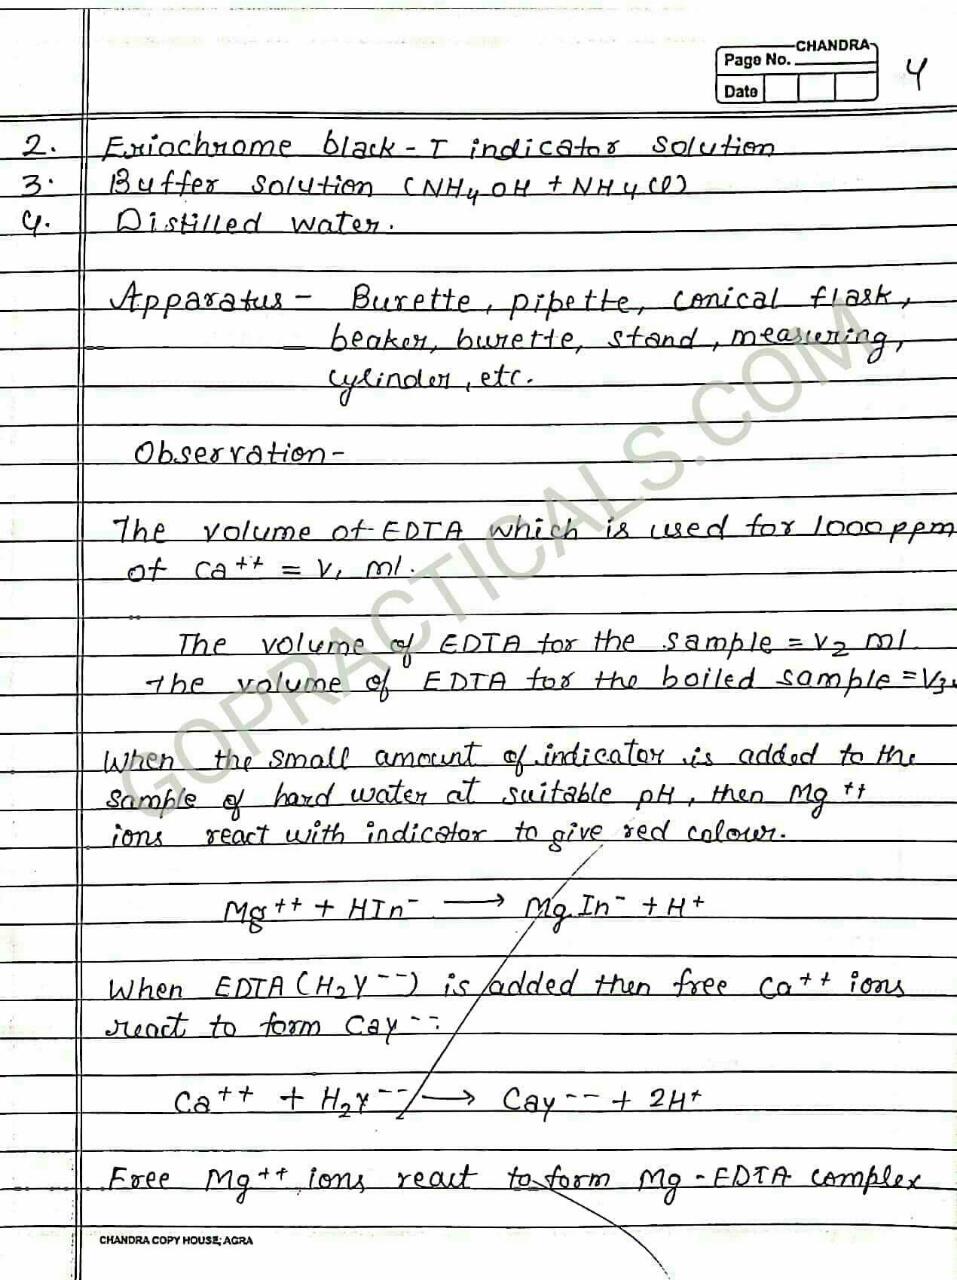 CHANDRA
Page No. 4
Date
2. Eriochrome black-T indicator solution
3. Buffer solution (NH4OH + NH4Cl)
4. Distilled water.
Apparatus - Burette, pipette, conical flask,
beaker, burette, stand, measuering,
cylinder, etc.
Observation-
The volume of EDTA which is used for 1000 ppm
of Ca++ = V1 ml.
The volume of EDTA for the sample = V2 ml.
The volume of EDTA for the boiled sample = V3
When the small amount of indicator is added to the
sample of hard water at suitable pH, then Mg++
ions react with indicator to give red colour.
Mg++ + HIn- → MgIn- + H+
When EDTA (H2Y--) is added then free Ca++ ions
react to form Cay--.
Ca++ + H2Y-- → Cay-- + 2H+
Free Mg++ ions react to form Mg-EDTA complex
CHANDRA COPY HOUSE; AGRA
GOPRACTICALS.COM